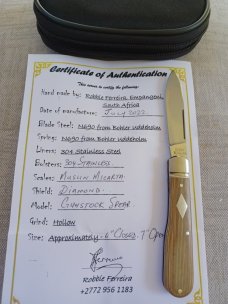 Certificate of Authentication
This serves to certify the following:
Hand made by: Robbie Ferreira, Empangeni,
South Africa
Date of manufacture: July 2022
Blade Steel: N690 from Bohler Uddeholm
Spring: N690 from Bohler Uddeholm
Liners: 304 Stainless Steel
Bolsters: 304 Stainless
Scales: Muslin Micarta
Shield: Diamond
Model: Gunstock Spear
Grind: Hollow
Size: Approximately 4" Closed, 7" Open
Robbie Ferreira
+2772 956 1183